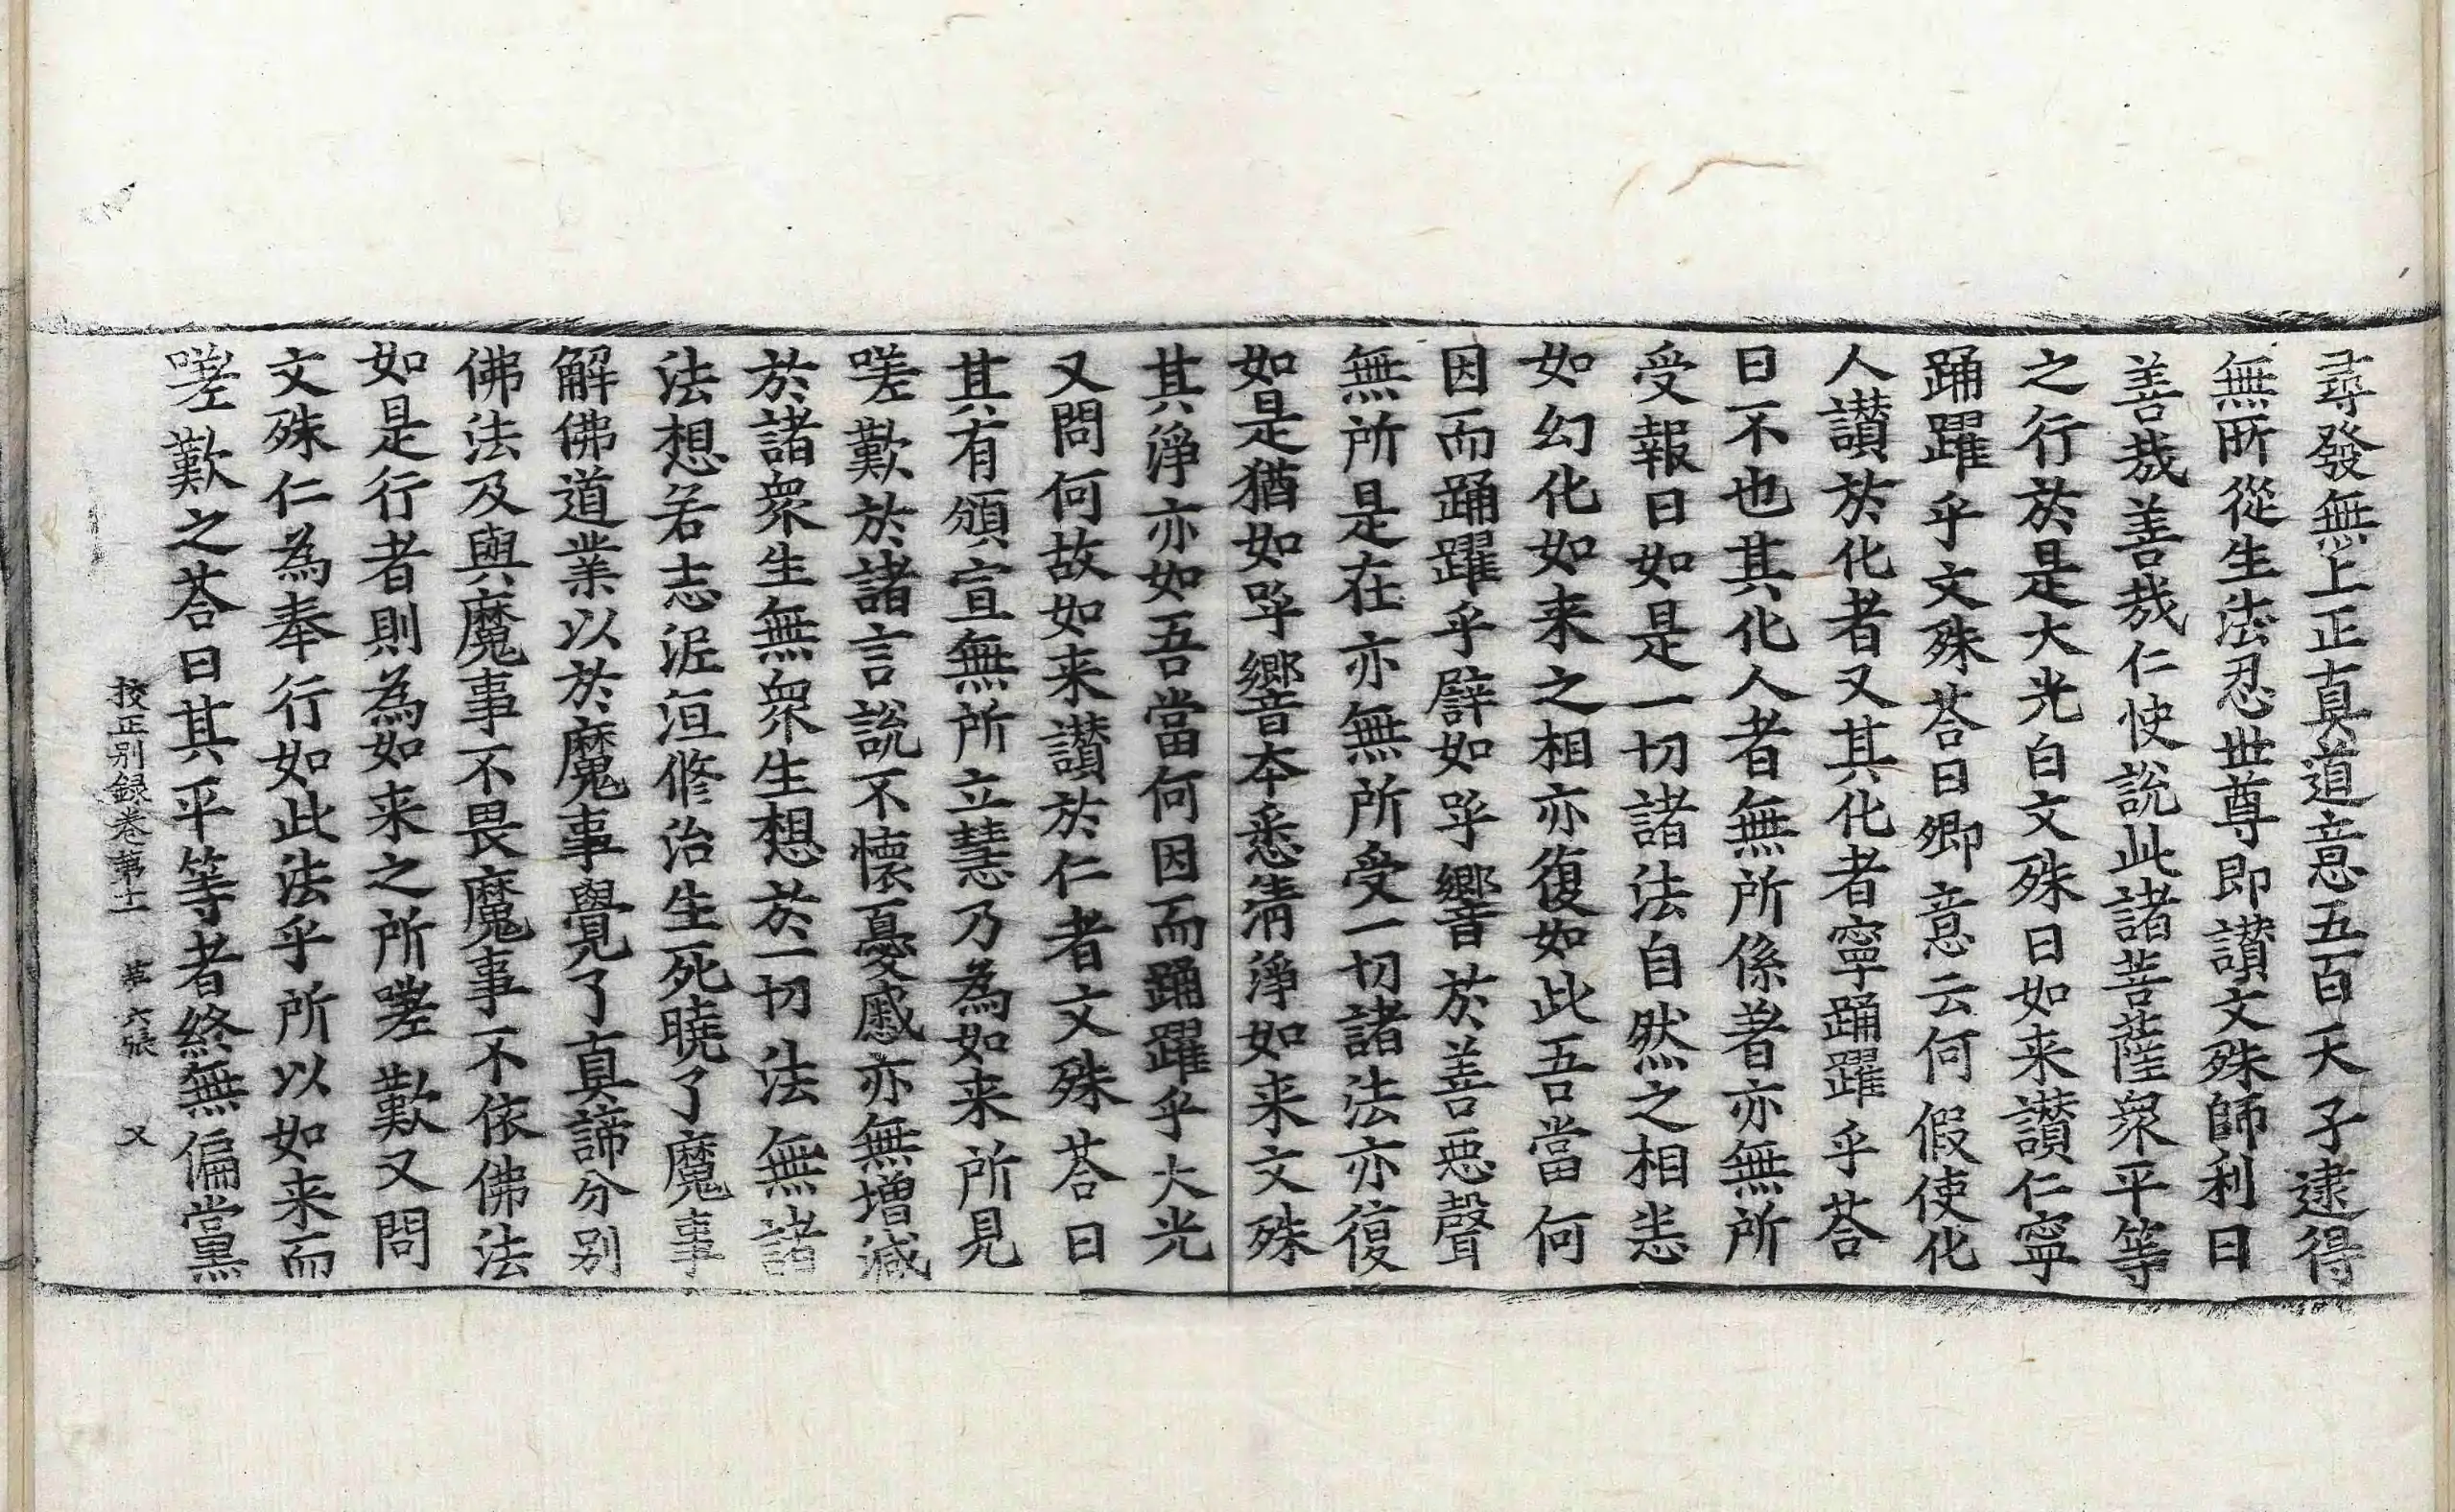 尋發無上正真道意五百天子逮得
無所從生法忍世尊即讃文殊師利曰
善哉善哉仁快說此諸菩薩衆平等
之行於是大光白文殊曰如来讃仁寧
踊躍乎文殊荅曰卿意云何假使化
人讃於化者又其化者寧踊躍乎荅
曰不也其化人者無所係著亦無所
受報曰如是一切諸法自然之相恚
如幻化如来之相亦復如此吾當何
因而踊躍乎譬如呼響於善惡聲
無所是在亦無所受一切諸法亦復
如是猶如呼響本悉清淨如来文殊
其淨亦如吾當何因而踊躍乎大光
又問何故如来讃於仁者文殊荅曰
其有頒宣無所立慧乃為如来所見
嗟歎於諸言說不懷憂慼亦無增減
於諸衆生無衆生想於一切法無諸
法想若志泥洹修治生死曉了魔事
解佛道業以於魔事覺了真諦分别
佛法及與魔事不畏魔事不依佛法
如是行者則為如来之所嗟歎又問
文殊仁為奉行如此法乎所以如来而
嗟歎之荅曰其平等者終無偏黨黑
校正别録卷第十一 第六張 又